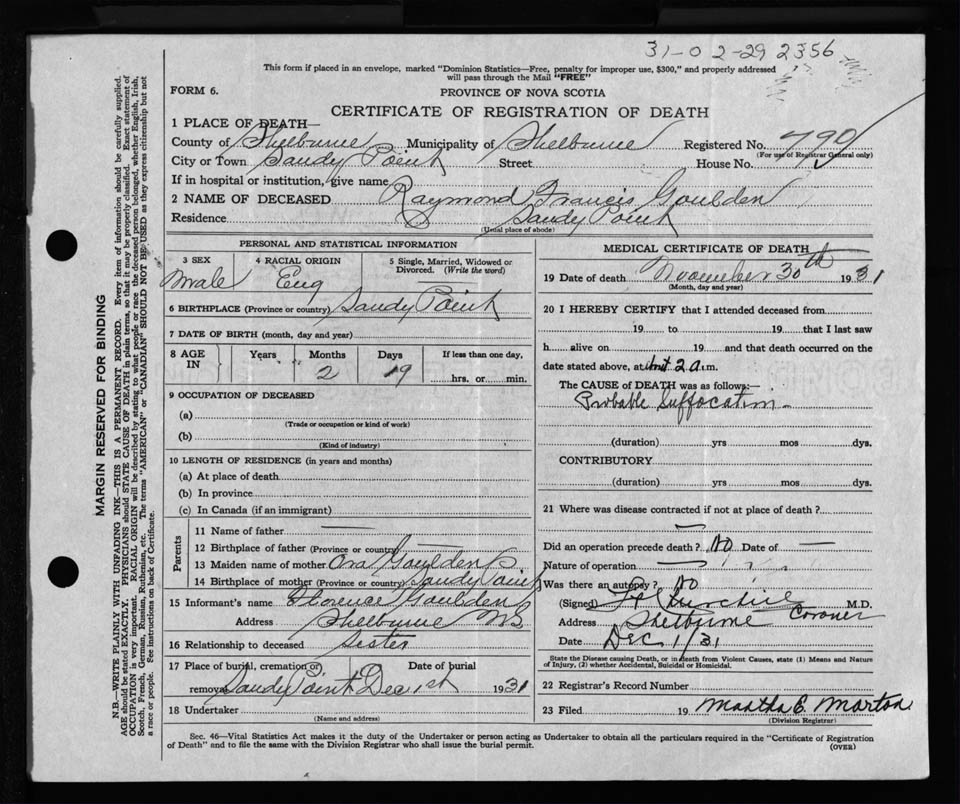 31-02-29 2356
This form if placed in an envelope, marked "Dominion Statistics—Free, penalty for improper use, $300," and properly addressed
will pass through the Mail "FREE"
FORM 6.
PROVINCE OF NOVA SCOTIA
CERTIFICATE OF REGISTRATION OF DEATH
1 PLACE OF DEATH—
County of Shelburne Municipality of Shelburne Registered No. 790
(For use of Registrar General only)
City or Town Sandy Point Street House No.
If in hospital or institution, give name
2 NAME OF DECEASED Raymond Francis Goulden
Residence Sandy Point
(Usual place of abode)
PERSONAL AND STATISTICAL INFORMATION
3 SEX
Male
4 RACIAL ORIGIN
Eng
5 Single, Married, Widowed or
Divorced. (Write the word)
6 BIRTHPLACE (Province or country) Sandy Point
7 DATE OF BIRTH (month, day and year)
8 AGE IN Years Months 2 Days 19 If less than one day,
hrs. or min.
9 OCCUPATION OF DECEASED
(a)
(Trade or occupation or kind of work)
(b)
(Kind of industry)
10 LENGTH OF RESIDENCE (in years and months)
(a) At place of death
(b) In province
(c) In Canada (if an immigrant)
Parents
11 Name of father —
12 Birthplace of father (Province or country) —
13 Maiden name of mother Ora Goulden
14 Birthplace of mother (Province or country) Sandy Point
15 Informant's name Florence Goulden
Address Shelburne NS
16 Relationship to deceased Sister
17 Place of burial, cremation or Date of burial
removal Sandy Point Dec 1st 1931
18 Undertaker
(Name and address)
MEDICAL CERTIFICATE OF DEATH
19 Date of death November 30th 1931
(Month, day and year)
20 I HEREBY CERTIFY that I attended deceased from
19 to 19 that I last saw
h alive on 19 and that death occurred on the
date stated above, at abt 2 a.m.
The CAUSE of DEATH was as follows:—
Probable Suffocation —
(duration) yrs mos dys.
CONTRIBUTORY
(duration) yrs mos dys.
21 Where was disease contracted if not at place of death?
Did an operation precede death? No Date of —
Nature of operation —
Was there an autopsy? No
(Signed) M.D.
Coroner
Address Shelburne
Date Dec 1/31
State the Disease causing Death, or in death from Violent Causes, state (1) Means and Nature
of Injury, (2) whether Accidental, Suicidal or Homicidal.
22 Registrar's Record Number
23 Filed 19 Martha E. Morton
(Division Registrar)
Sec. 46—Vital Statistics Act makes it the duty of the Undertaker or person acting as Undertaker to obtain all the particulars required in the "Certificate of Registration
of Death" and to file the same with the Division Registrar who shall issue the burial permit.
(OVER)
MARGIN RESERVED FOR BINDING
N.B.—WRITE PLAINLY WITH UNFADING INK—THIS IS A PERMANENT RECORD. Every item of information should be carefully supplied.
AGE should be stated EXACTLY. PHYSICIANS should STATE CAUSE OF DEATH in plain terms, so that it may be properly classified. Exact statement of
OCCUPATION is very important. RACIAL ORIGIN will be described by stating to what people or race the deceased person belonged, whether English, Irish,
Scotch, French, German, Russian, Ruthenian, etc. The terms "AMERICAN" or "CANADIAN" SHOULD NOT BE USED as they express citizenship but not
a race or people. See instructions on back of Certificate.